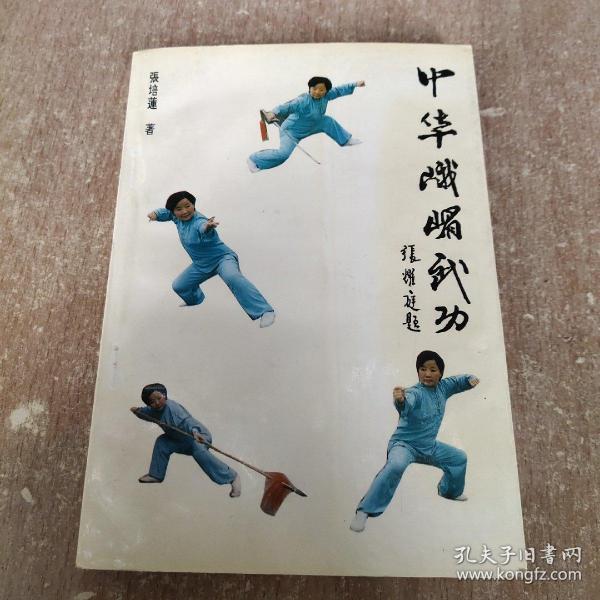 張培蓮 著
中华峨嵋武功
張耀庭题
孔夫子旧書网
www.kongfz.com